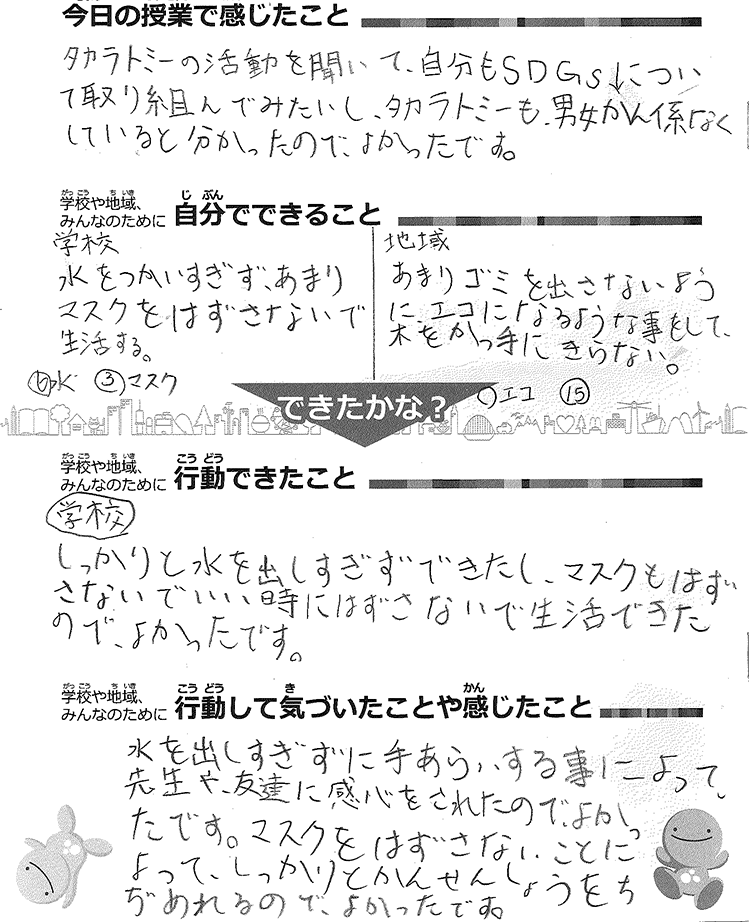 今日の授業で感じたこと
タカラトミーの活動を聞いて、自分もSDGs↓につい
て取り組んでみたいし、タカラトミーも、男女かん係なく
していると分かったので、よかったです。
がっこう ちいき
学校や地域、
みんなのために 自分でできること
じ ぶん
学校
水をつかいすぎず、あまり
マスクをはずさないで
生活する。
⑥水 ③マスク
地域
あまりゴミを出さないよう
に、エコになるような事をして、
木をかっ手にきらない。
エコ ⑮
できたかな？
がっこう ちいき
学校や地域、
みんなのために 行動できたこと
こう どう
学校
しっかりと水を出しすぎずできたし、マスクもはずい
さないでいい時にはずさないで生活できた
ので、よかったです。
がっこう ちいき
学校や地域、
みんなのために 行動して気づいたことや感じたこと
こう どう き かん
水を出しすぎずに手あらいする事によって、
先生や、友達に感心をされたので、よかっ
たです。マスクをはずさないことに
よって、しっかりとかんせんしょうをち
ぢめれるので、よかったです。